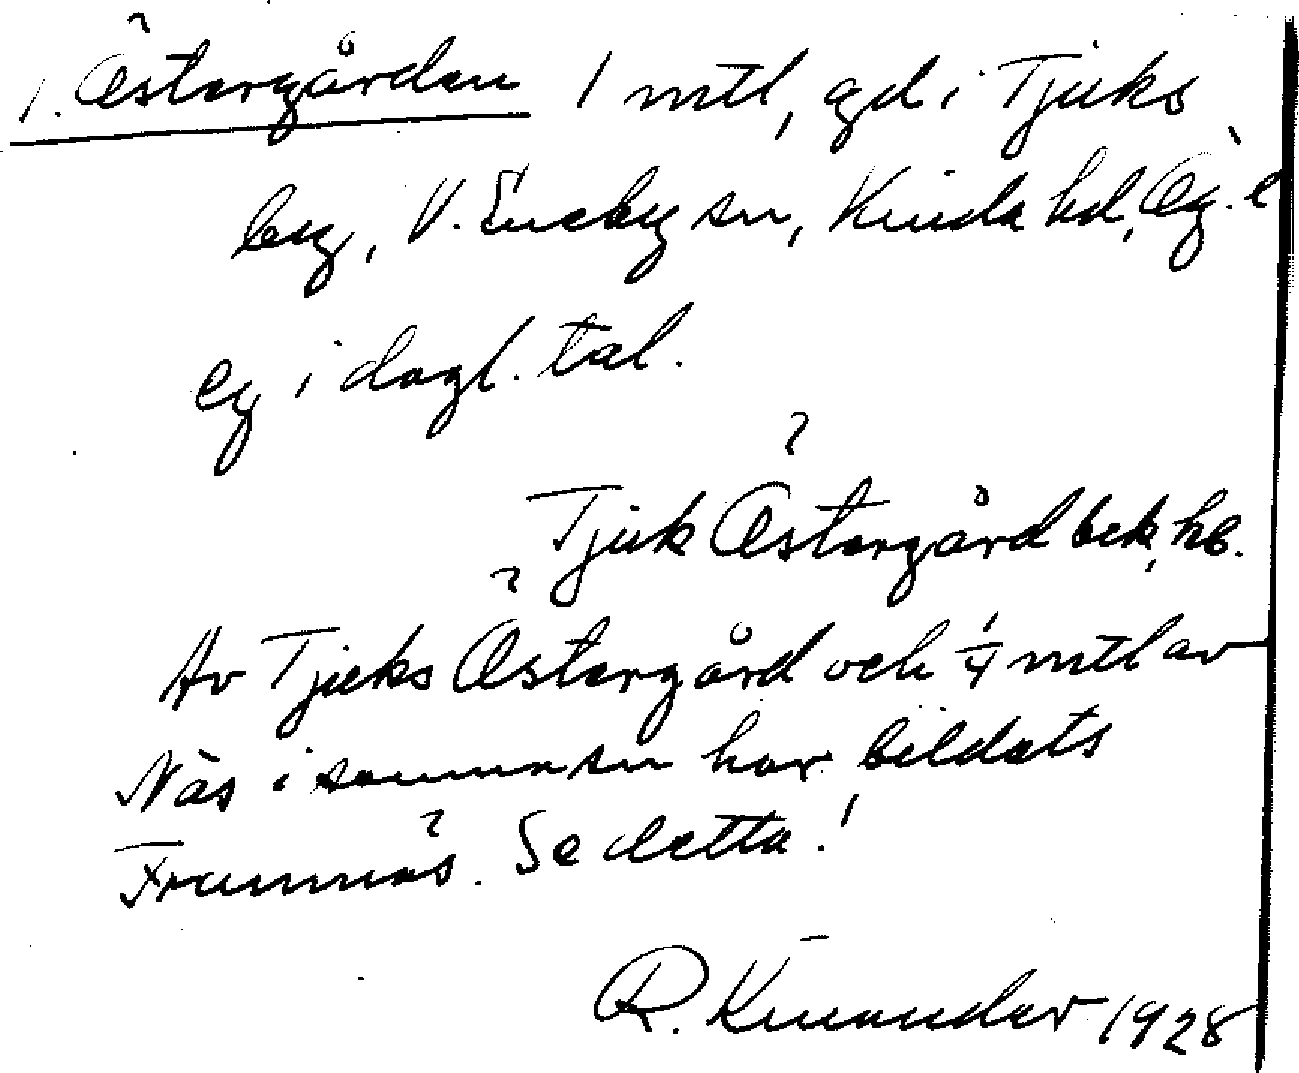 1. Östergården 1 mtl, gd i Tjuks
by, V. Eneby sn, Kinda hd, Ög. e
ej i dagl. tal.
Tjuk Östergård bek, hb.
Av Tjuks Östergård och 1/4 mtl av
Näs i samma sn har bildats
Framnäs. Se detta!
R. Kinander 1928